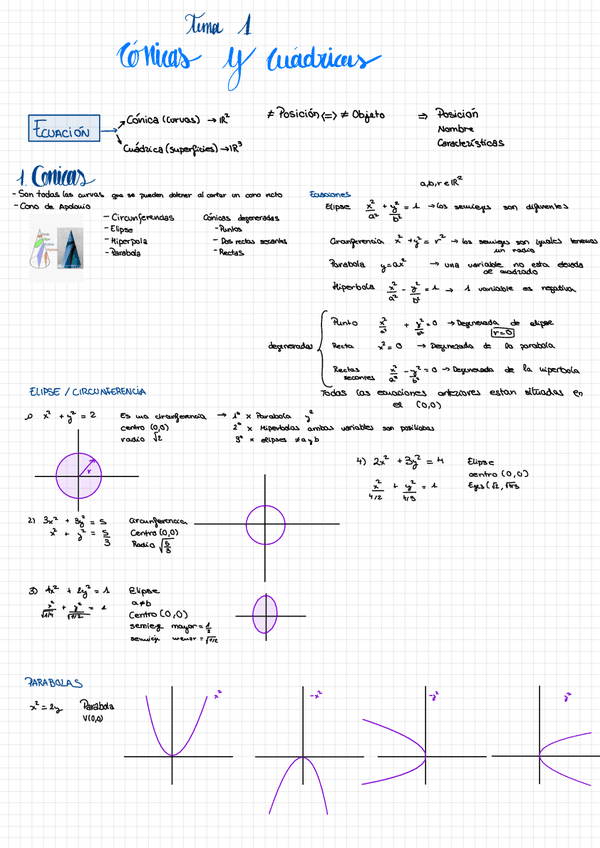 Tema 1
Cónicas y Cuádricas
ECUACIÓN
Cónica (curvas) → ℝ²
Cuádrica (superficies) → ℝ³
≠ Posición <=> ≠ Objeto ⇒ Posicion
Nombre
Características
1. Conicas
- Son todas las curvas que se pueden obtener al cortar un cono recto
- Cono de Apolonio
- Circunferencias
- Elipse
- Hiperpola
- Parabola
Cónicas degeneradas
- Puntos
- Dos rectas secantes
- Rectas
a,b,r ∈ ℝ²
Ecuaciones
Elipse x²/a² + y²/b² = 1 → los semiejes son diferentes
Circunferencia x² + y² = r² → los semiejes son iguales tenemos
un radio
Parabola y=ax² → una variable no esta elevada
al cuadrado
Hiperbola x²/a² - y²/b² = 1 → 1 variable es negativa
degeneradas
Punto x²/a² + y²/b² = 0 → Degenerada de elipse
r=0
Recta x² = 0 → Degenerada de la parabola
Rectas secantes x²/a² - y²/b² = 0 → Degenerada de la hiperbola
Todas las ecuaciones anteriores estan situadas en
el (0,0)
ELIPSE / CIRCUNFERENCIA
1) x² + y² = 2 Es una circunferencia → 1º x Parabola y²
centro (0,0) 2º x Hiperbolas ambas variables son positivas
radio √2 3º x elipses ≠ a y b
r
4) 2x² + 3y² = 4 Elipse
centro (0,0)
x²/4/2 + y²/4/3 = 1
2) 3x² + 3y² = 5 circunferencia
x² + y² = 5/3 Centro (0,0)
Radio √5/3
3) 4x² + 2y² = 1 Elipse
a≠b
x²/√1/4 + y²/√1/2 = 1
Centro (0,0)
PARABOLAS
x² = 2y Parabola
V(0,0)
x²
-x²
-y²
y²